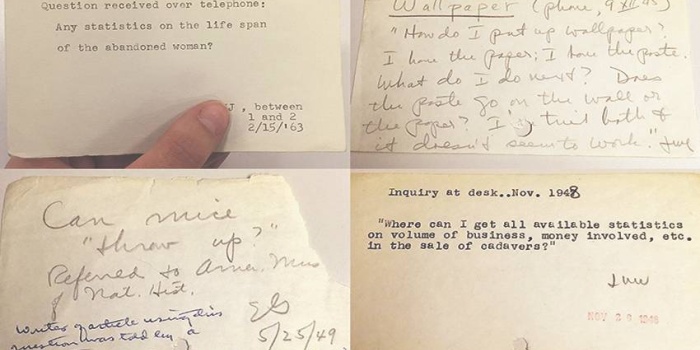 Question received over telephone:
Any statistics on the life span
of the abandoned woman?
, between
1 and 2
2/15/'63
Wallpaper (phone, 9 XII 45)
"How do I put up wallpaper?
I have the paper; I have the paste.
What do I do next? Does
the paste go on the wall or
the paper? I've tried both &
it doesn't seem to work."
Can mice
"throw up?"
Referred to Amer. Mus
of Nat. Hist.
5/25/49
Writer of article using this
question was told by a
Inquiry at desk..Nov. 1948
"Where can I get all available statistics
on volume of business, money involved, etc.
in the sale of cadavers?"
NOV 26 1948